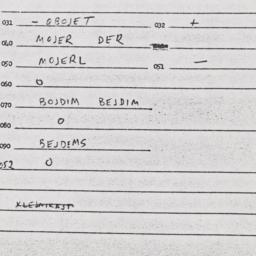 031 - OBOJET 032 +
040 MOJER DER
050 MOJERL 051 -
060 O
070 BOJDIM BEJDIM
080 O
090 BEJDEMS
052 O